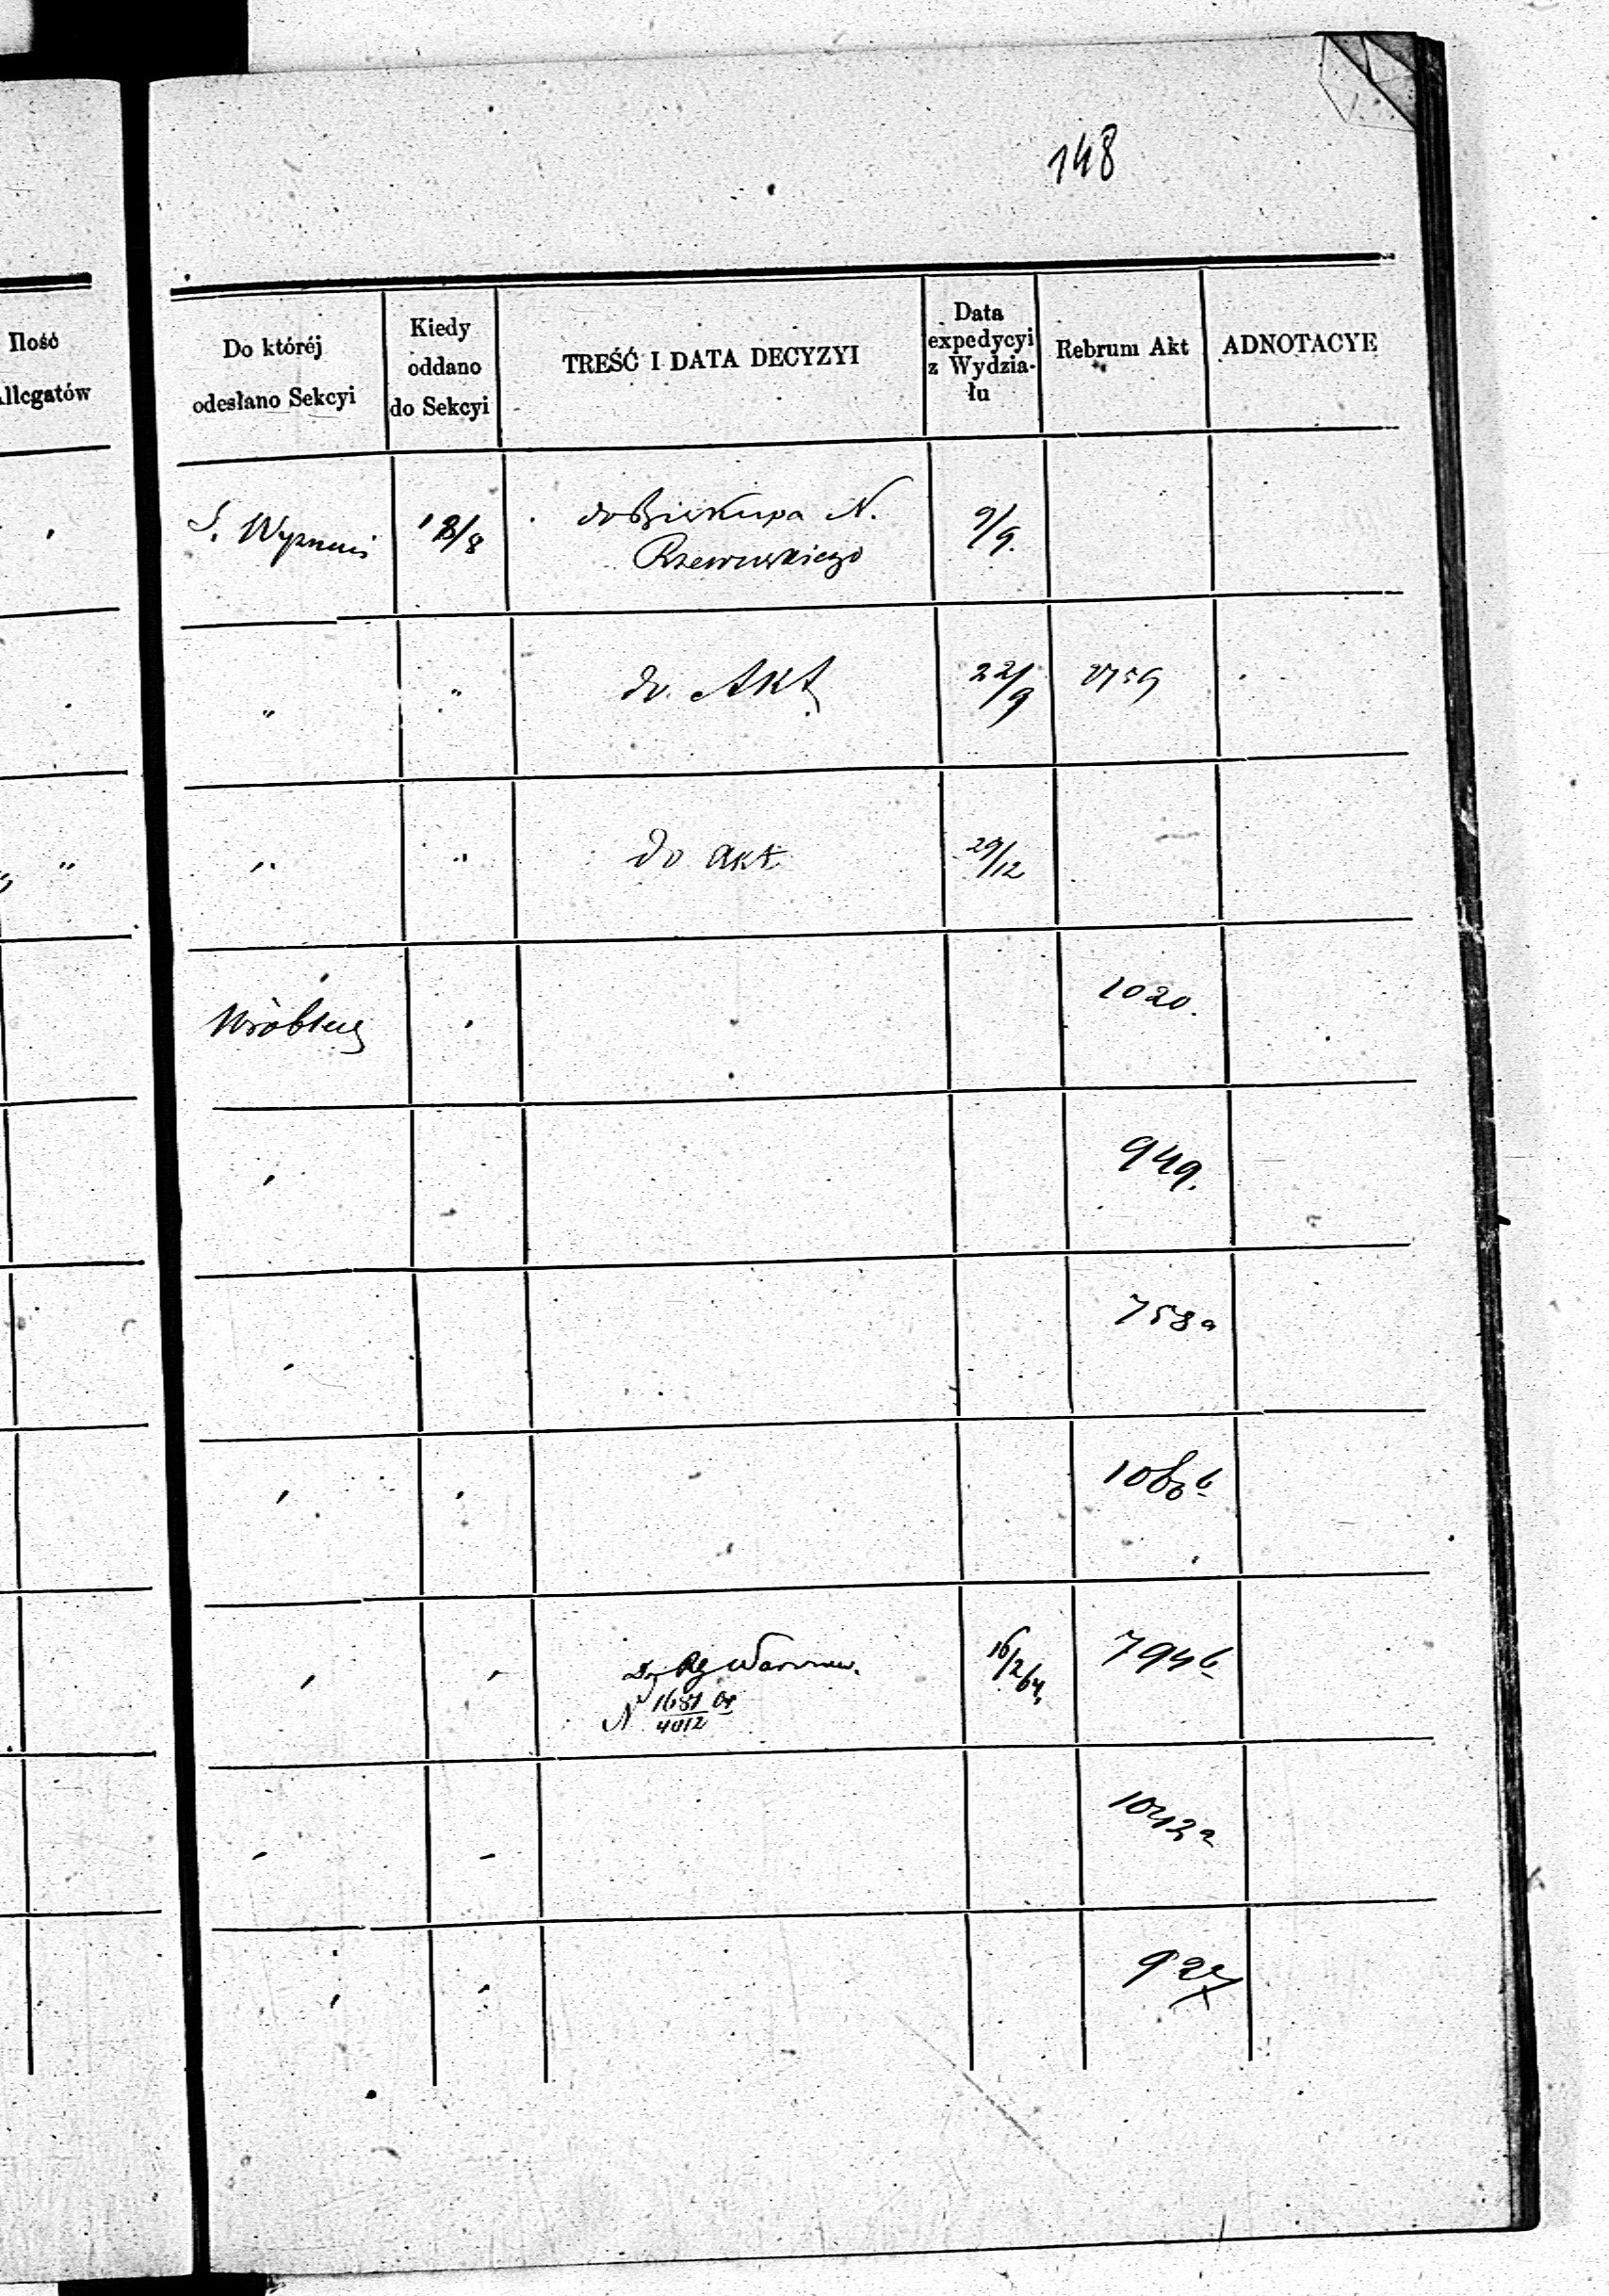 148
Ilość
Allegatów
Do któréj
odesłano Sekcyi
Kiedy
oddano
do Sekcyi
TREŚĆ I DATA DECYZYI
Data
expedycyi
z Wydzia-
łu
Rebrum Akt
ADNOTACYE
S. Wyznań 18/8 do Biskupa N. 9/9.
Rzewuskiego
" " do Akt 22/9
" " do akt. 29/12
1020.
949.
758a
Warszaw. 16/2 64. 794b
N 1681
4012
1042a
927